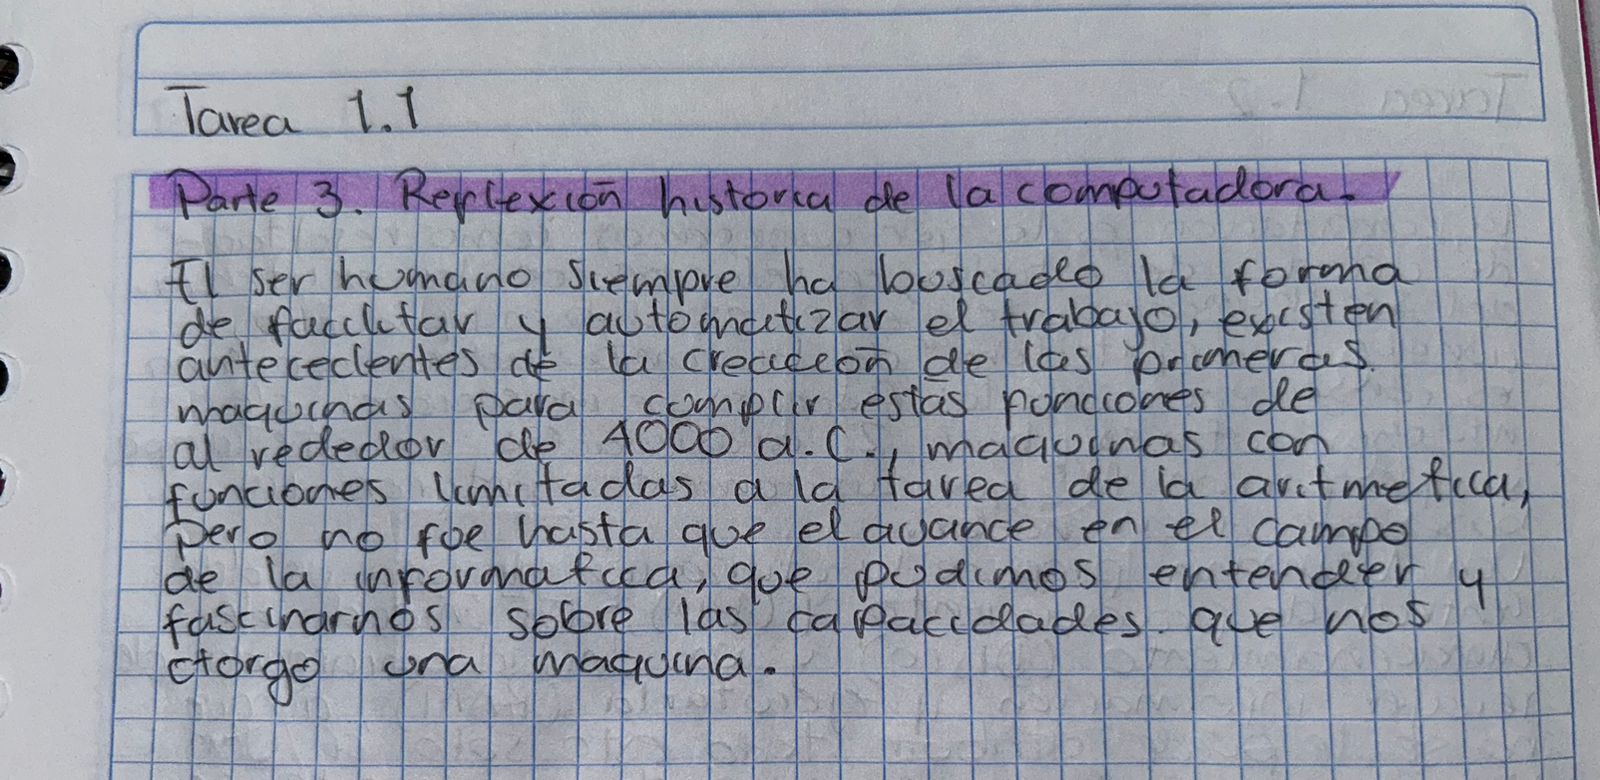 Tarea 1.1
Parte 3. Reflexión historia de la computadora.
El ser humano siempre ha buscado la forma
de facilitar y automatizar el trabajo, existen
antecedentes de la creación de las primeras
maquinas para complir estas fonciones de
al rededor de 4000 a.C., maquinas con
funciones limitadas a la tarea de la aritmetica,
pero no fue hasta que el avance en el campo
de la informatica, que pudimos entender y
fascinarnos sobre las capacidades que nos
otorgo una maquina.